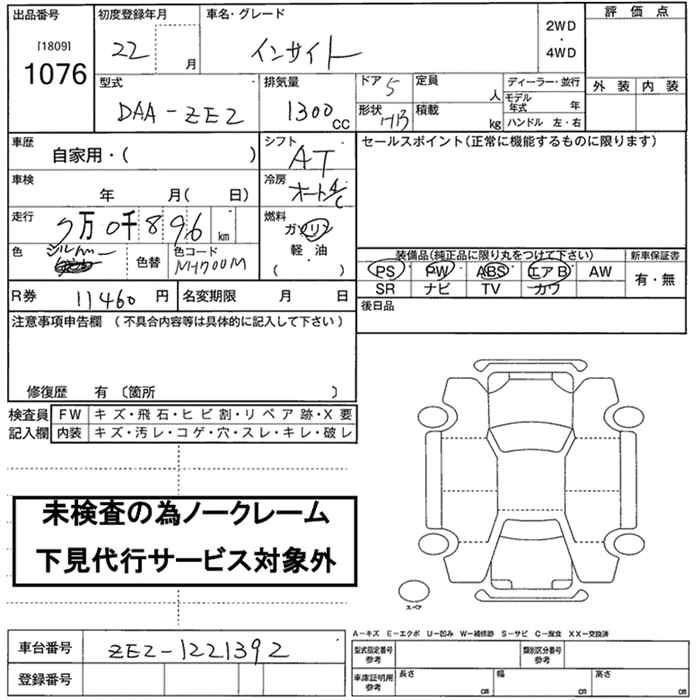 出品番号 初度登録年月 車名・グレード 評価点
[1809]
1076
22 月 インサイト 2WD ・ 4WD
外装 内装
型式 排気量 ドア 5 定員 人 ディーラー・並行
DAA-ZE2 1300 CC 形状 HB 積載 kg モデル年式 年
ハンドル 左・右
車歴 シフト セールスポイント(正常に機能するものに限ります)
自家用・( ) AT
車検 冷房
年 月( 日) オートA/C
走行 万 0千 896 km 燃料
ガソリン
色 シルバー 色替 色コード 軽・油
( )
装備品(純正品に限り丸をつけて下さい) 新車保証書
PS PW ABS エアB AW 有・無
SR ナビ TV カワ
R券 11460 円 名変期限 月 日
後日品
注意事項申告欄 (不具合内容等は具体的に記入して下さい)
修復歴 有 〔箇所 〕
検査員記入欄 FW キズ・飛石・ヒビ割・リペア跡・X要
内装 キズ・汚レ・コゲ・穴・スレ・キレ・破レ
未検査の為ノークレーム
下見代行サービス対象外
スペア
A-キズ E-エクボ U-凹み W-補修跡 S-サビ C-腐食 XX-交換済
車台番号 ZE2-1221392
型式指定番号 参考 類別区分番号 参考
登録番号
車庫証明用 参考 長さ cm 幅 cm 高さ cm